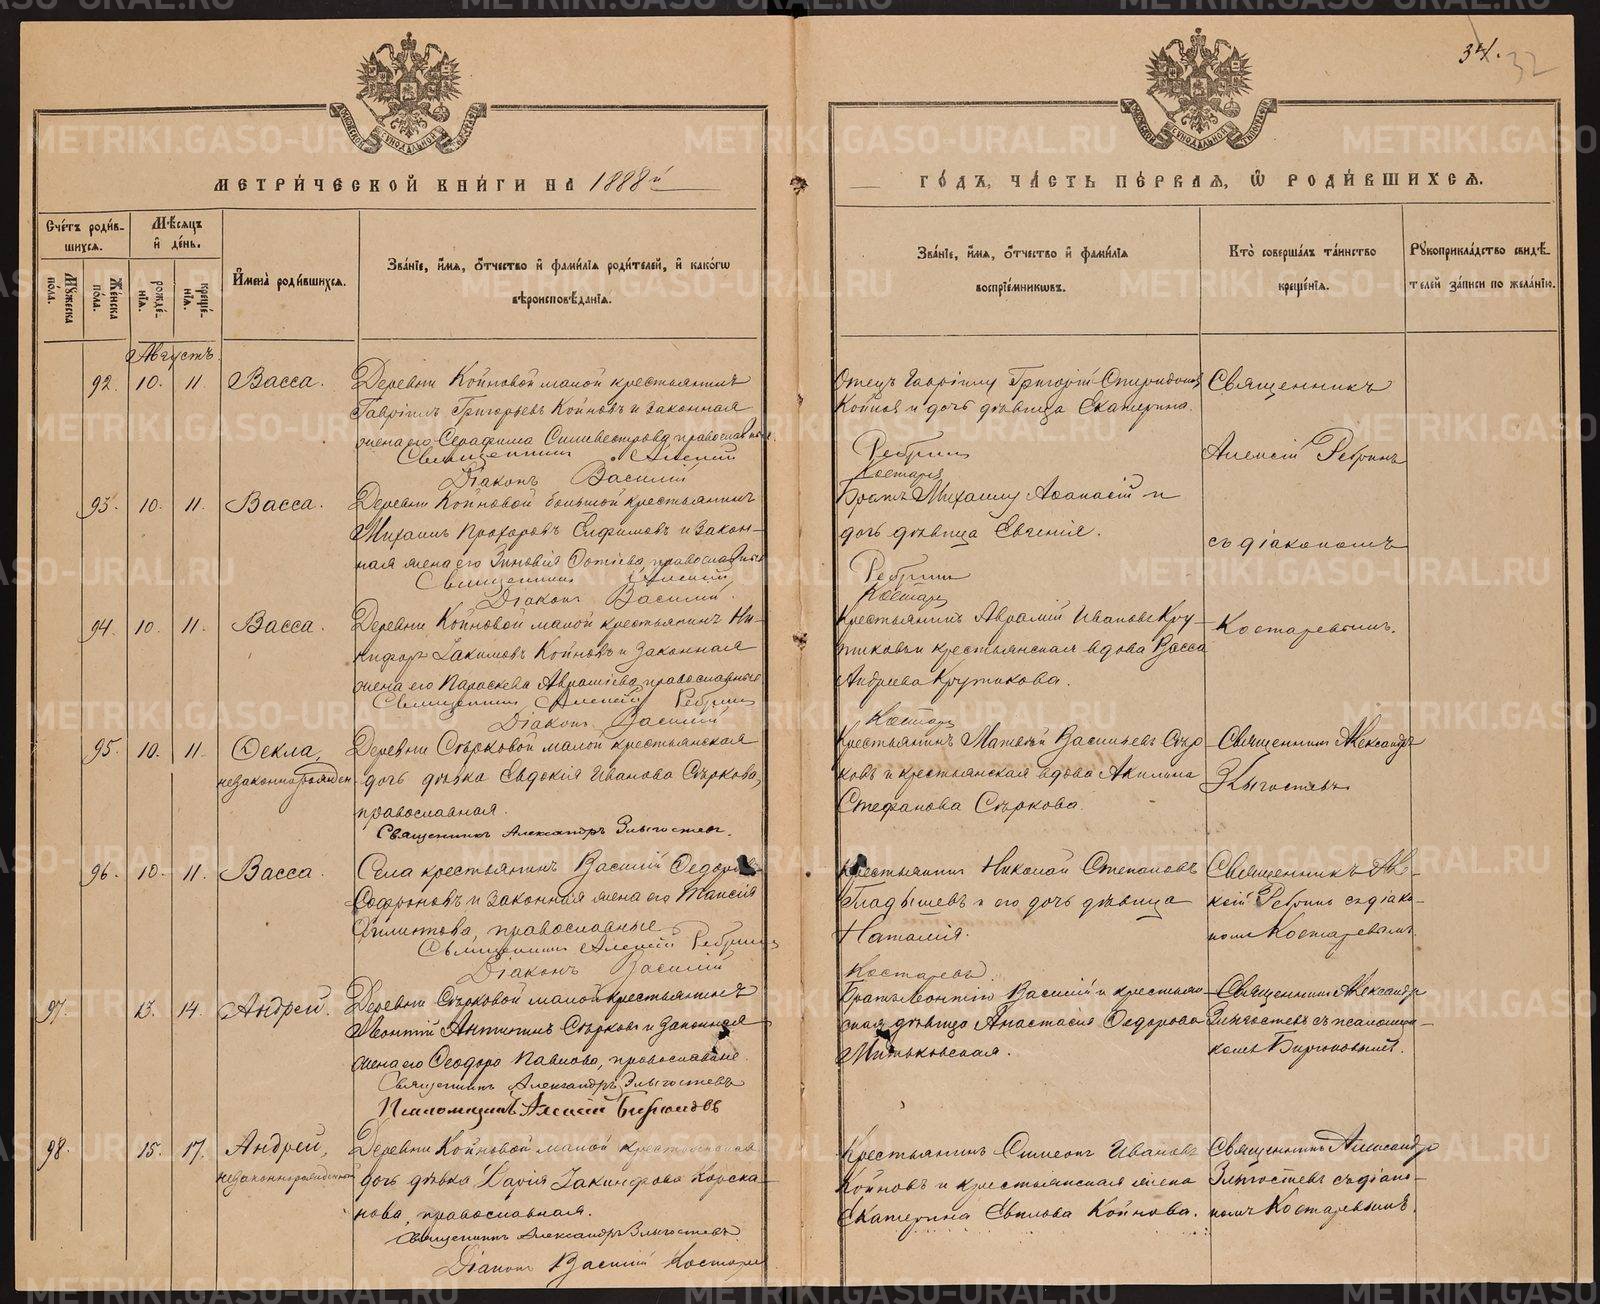 34. 32
МЕТРИЧЕСКОЙ КНИГИ НА 1888й
ГОДЪ, ЧАСТЬ ПЕРВАЯ, Ѿ РОДИВШИХСЯ.
Счетъ родившихся.
Мѣсяцъ и день.
Мужеска пола.
Женска пола.
рожденія.
крещенія.
Имена родившихся.
Званіе, имя, отчество и фамилія родителей, и какогѡ вѣроисповѣданія.
Званіе, имя, отчество и фамилія воспріемниковъ.
Кто совершалъ таинство крещенія.
Рукоприкладство свидѣтелей записи по желанію.
Августъ
92. 10. 11. Васса.
Деревни Койновой малой крестьянинъ
Гавріилъ Григорьевъ Койновъ и законная
жена его Серафима Силивестрова, православные.
Священникъ Алексій Ребринъ
Діаконъ Василій Костарев
Отецъ Гавріилу Григорій Спиридоновъ
Койновъ и дочь дѣвица Екатерина.
Священникъ
Алексій Ребринъ
съ діакономъ
Костаревымъ.
93. 10. 11. Васса.
Деревни Койновой большой крестьянинъ
Михаилъ Прохоровъ Елфимовъ и закон-
ная жена его Зиновія Фотіева, православные
Священникъ Алексій Ребринъ
Діаконъ Василій Костарев
Братъ Михаилу Афанасій и
дочь дѣвица Евгенія.
94. 10. 11. Васса.
Деревни Койновой малой крестьянинъ Ни-
кифоръ Іакимовъ Койновъ и законная
жена его Параскева Авраміева, православные
Священникъ Алексій Ребринъ
Діаконъ Василій Костарев
Крестьянинъ Аврамій Ивановъ Кру-
тиковъ и крестьянская вдова Васса
Андреева Крутикова.
95. 10. 11. Ѳекла,
незаконнорожден
Деревни Сѣрковой малой крестьянская
дочь дѣвка Евдокія Иванова Сѣркова,
православная.
Священникъ Александръ Злыгостевъ.
Крестьянинъ Матвей Васильевъ Сѣр
ковъ и крестьянская вдова Акилина
Стефанова Сѣркова.
Священникъ Александръ
Злыгостевъ
96. 10. 11. Васса.
Села крестьянинъ Василій Ѳедоровъ
Софроновъ и законная жена его Таисія
Филиппова, православные
Священникъ Алексій Ребринъ
Діаконъ Василій Костаревъ.
Крестьянинъ Николай Степановъ
Гладышевъ и его дочь дѣвица
Наталія.
Священникъ Але-
ксій Ребринъ съ діако-
номъ Костаревымъ.
97. 13. 14. Андрей.
Деревни Сѣрковой малой крестьянинъ
Леонтій Антипинъ Сѣрковъ и законная
жена его Ѳеодора Павлова, православные.
Священникъ Александръ Злыгостевъ
Псаломщикъ Алексій Бирюковъ
Братъ Леонтію Василій и крестьян-
ская дѣвица Анастасія Ѳедорова
Миньковская.
Священникъ Александръ
Злыгостевъ съ псаломщи-
комъ Бирюковымъ.
98. 15. 17. Андрей,
незаконнорожденный
Деревни Койновой малой крестьянская
дочь дѣвка Дарія Іакинфова Корска-
нова, православная.
Священникъ Александръ Злыгостевъ.
Діаконъ Василій Костарев
Крестьянинъ Симеонъ Ивановъ
Койновъ и крестьянская жена
Екатерина Евплова Койнова.
Священникъ Александръ
Злыгостевъ съ діако-
номъ Костаревымъ.
METRIKI.GASO-URAL.RU